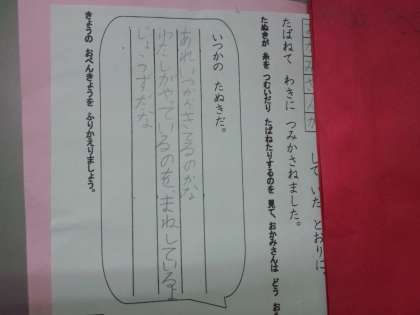 おかみさんが
して いた とおりに、
たばねて わきに つみかさねました。
たぬきが 糸を つむいだり たばねたりするのを 見て、おかみさんは どう お
いつかの たぬきだ。
あれ、いつかんきてるのかな
わたしがやっているのを、まねしているよ
じょうずだな
きょうの おべんきょうを ふりかえりましょう。